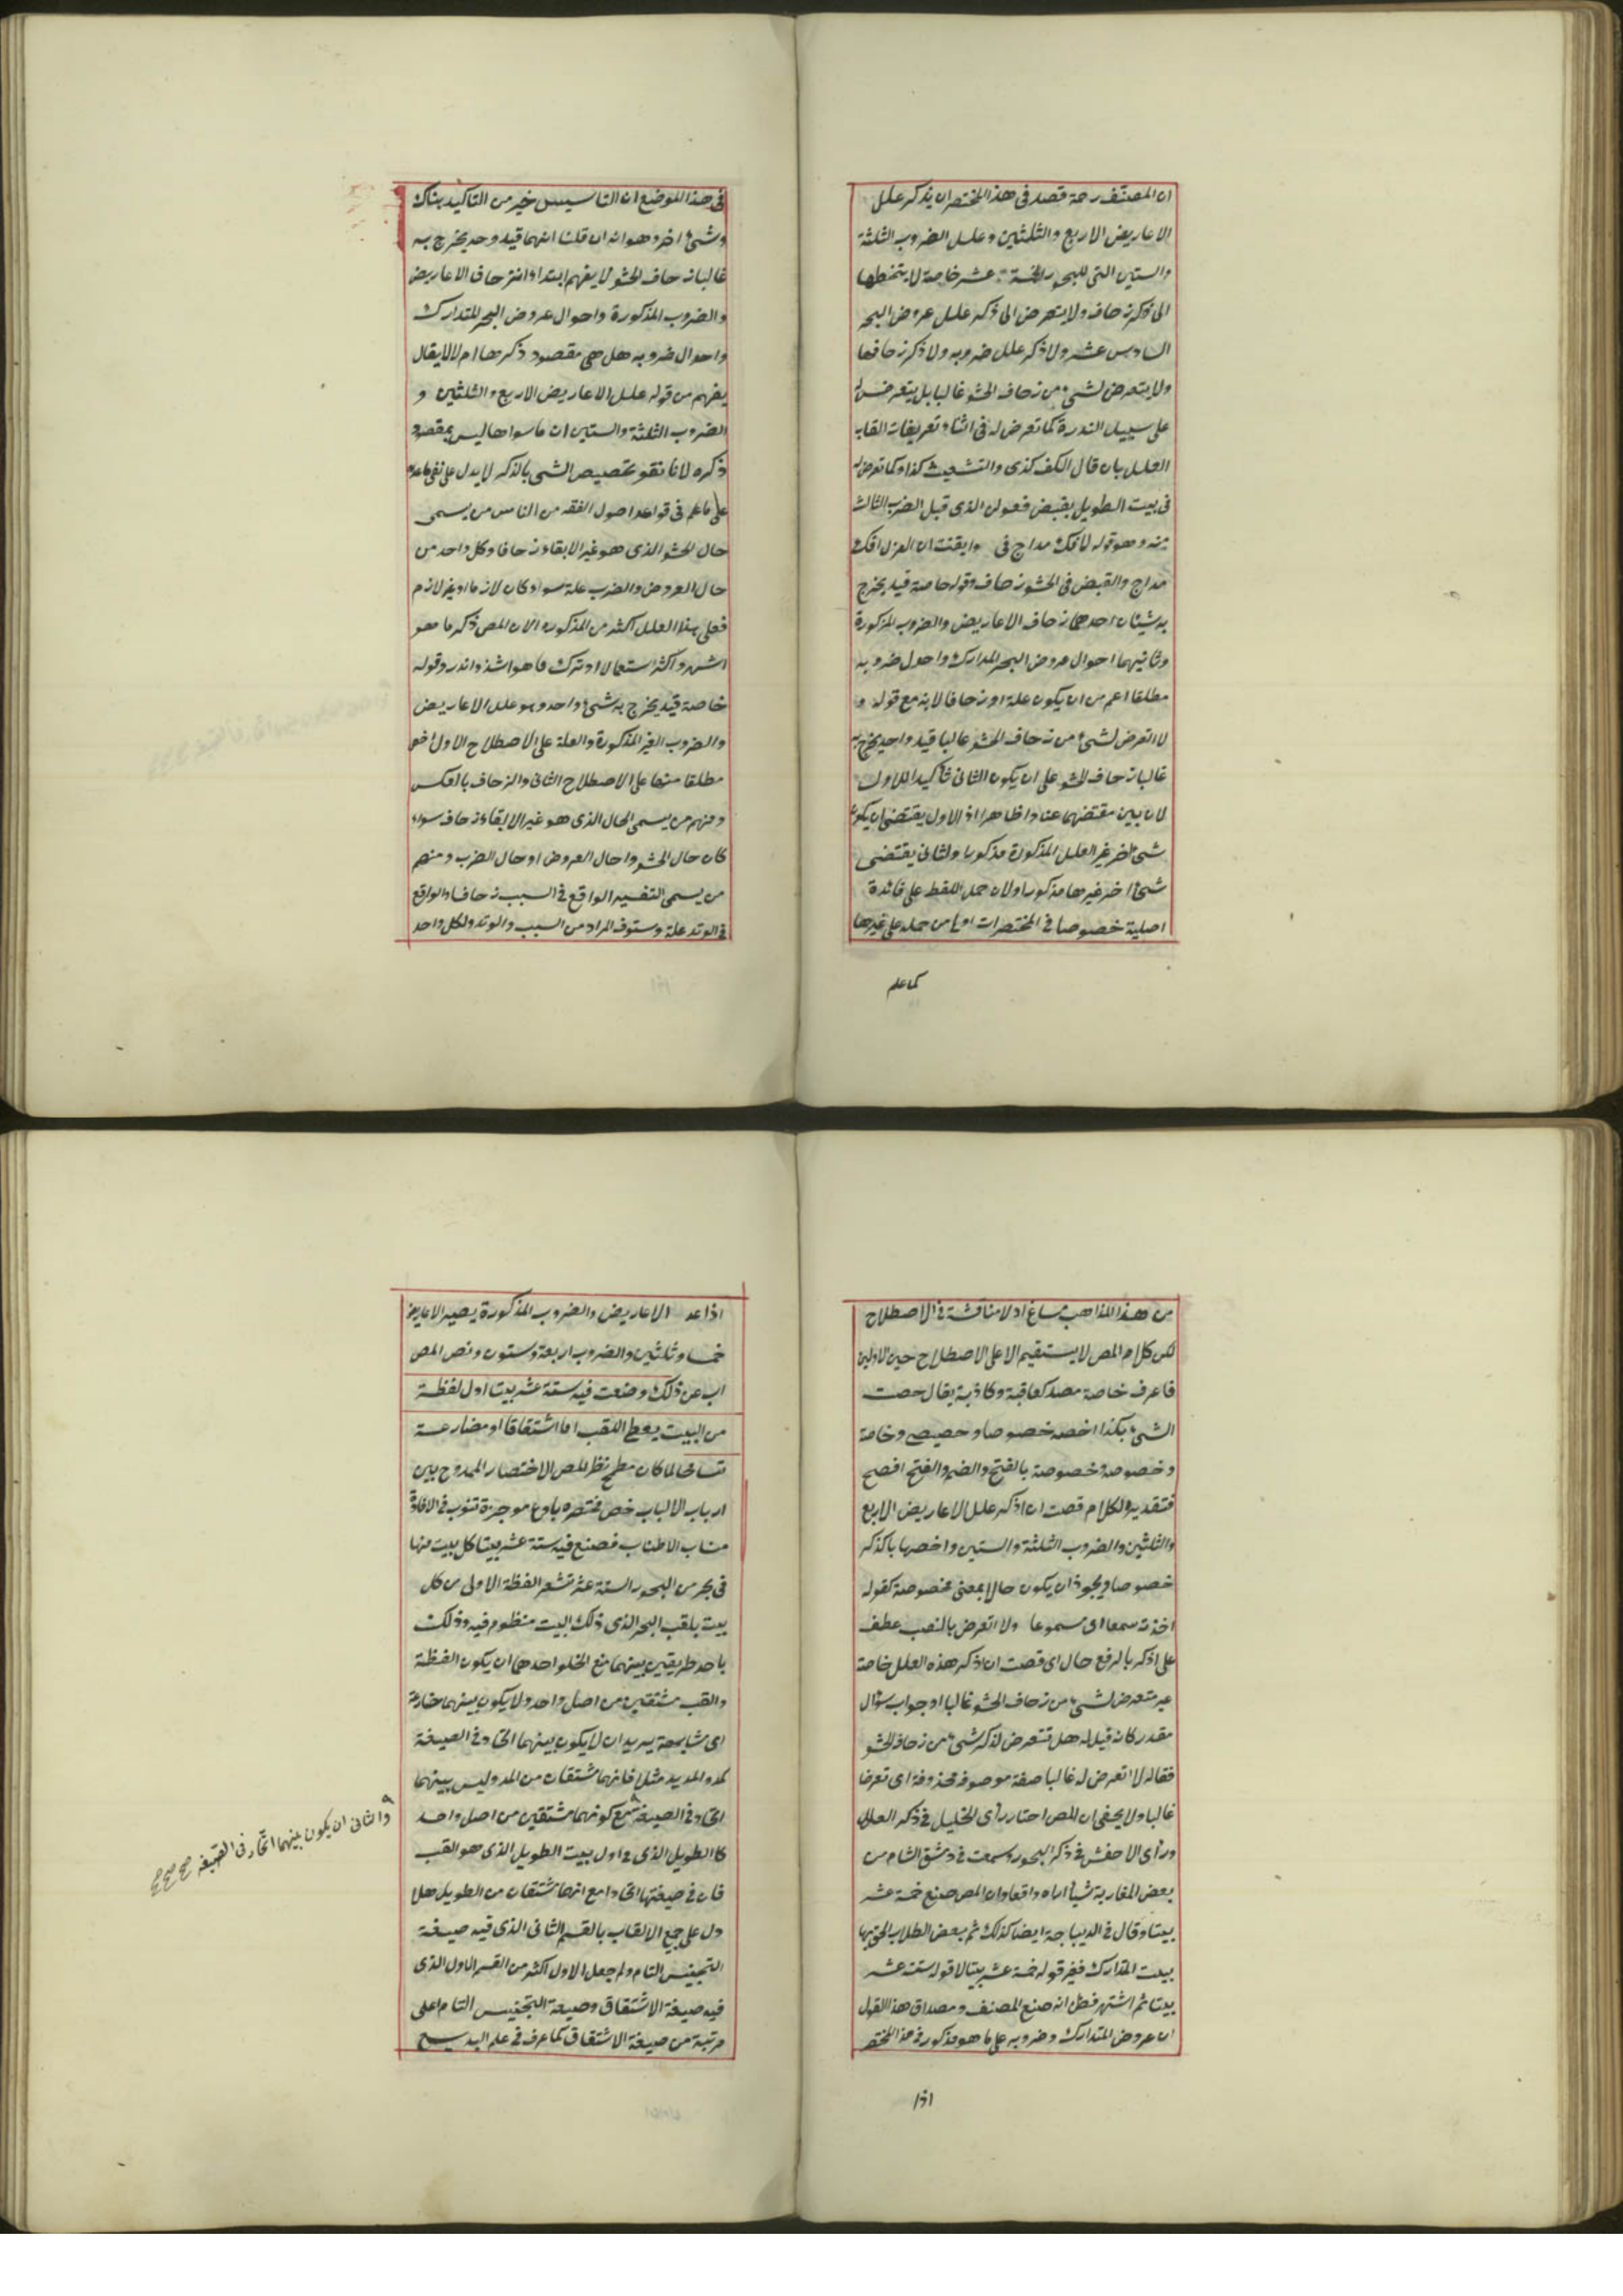 ان المصنف رحمة قصد فى هذا المختصر ان يذكر علل
الاعاريض الاربع والثلثين وعلل الضروب الثلثة
والستين التى للبحور الخمسة عشر خاصة لا يتخطها
الى ذكر زحاف ولا يتعرض الى ذكر علل عروض البحر
السادس عشر ولا ذكر علل ضروبه ولا ذكر زحافها
ولا يتعرض لشىء من زحاف الحشو غالبا بل يتعرض له
على سبيل الندرة كما تعرض له فى اثناء تعريفات القاب
العلل بان قال الكف كذى والتشعيث كذا وكما تعرض له
فى بيت الطويل بقبض فعولن الذى قبل الضرب الثالث
منه وهو قوله لافك مداج فى وايقنت ان العزل افك
مداج والقبض فى الحشو زحاف وقوله خاصة قيد يخرج
به شيئان احدهما زحاف الاعاريض والضروب المذكورة
وثانيهما احوال عروض البحر المدارك واحول ضروبه
مطلقا اعم من ان يكون علة او زحافا لانه مع قوله و
لا اتعرض لشىء من زحاف الحشو غالبا قيد واحد يخرج به
غالبا زحاف الحشو على ان يكون الثانى تأكيدا للاول
لان بين مقتضهما عنادا ظاهرا اذ الاول يقتضى ان يكون
شىء اخر غير العلل المذكورة مذكورا والثانى يقتضى
شىء اخر غيرها مذكورا ولان حمل اللفظ على فائدة
اصلية خصوصا فى المختصرات اولى من حمله على غيرها
كما علم
فى هذا الموضع ان التاسيس خير من التاكيد هناك
وشىء اخر وهو انه ان قلنا انهما قيد وحد يخرج به
غالبا زحاف الحشو لا يفهم ابتداء ان زحاف الاعاريض
والضروب المذكورة واحوال عروض البحر المتدارك
واحوال ضروبه هل هى مقصود ذكرها ام لا لا يقال
يفهم من قوله علل الاعاريض الاربع والثلثين و
الضروب الثلثة والستين ان ما سواها ليس بمقصود
ذكره لانا نقو تخصيص الشى بالذكر لا يدل على نفى ما عداه
على ما علم فى قواعد اصول الفقه من الناس من يسمى
حال الحشو الذى هو غير الابقاء زحافا وكل واحد من
حال العروض والضرب علة سواء كان لازما او غير لازم
فعلى هذا العلل اكثر من المذكوره الا ان المص ذكر ما هو
اشهر واكثر استعمالا وترك ما هو اشذ واندر وقوله
خاصة قيد يخرج به شىء واحد وهو علل الاعاريض
والضروب الغير المذكورة والعلة على الاصطلاح الاول اخص
مطلقا منها على الاصطلاح الثانى والزحاف بالعكس
ومنهم من يسمى الحال الذى هو غير الابقاء زحاف سواء
كان حال الحشو او حال العروض او حال الضرب ومنهم
من يسمى التغيير الواقع فى السبب زحافا والواقع
فى الوتد علة وستوف المراد من السبب والوتد ولكل واحد
من هذا المذاهب مساغ اذ لا مناقشة فى الاصطلاح
لكن كلام المص لا يستقيم الا على الاصطلاح حين الاولين
فاعرف خاصة مصدر كعاقبة وكاذبة يقال خصت
الشىء بكذا اخصه خصوصا وخصيصى وخاصة
وخصوصة خصوصة بالفتح والضم والفتح افصح
فتقدير الكلام قصت ان اذكر علل الاعاريض الاربع
والثلثين والضروب الثلثة والستين واخصها بالذكر
خصوصا ويجوز ان يكون حالا بمعنى مخصوصة كقوله
اخذته سمعا اى مسموعا ولا اتعرض بالنصب عطف
على اذكر بالرفع حال اى قصت ان اذكر هذه العلل خاصة
غير متعرض لشىء من زحاف الحشو غالبا او جواب سؤال
مقدر كانه قيل له هل تتعرض لذكر شىء من زحاف الحشو
فقال لا اتعرض له غالبا صفة موصوف محذوفة اى تعرضا
غالبا ولا يخفى ان المص اختار رأى الخليل فى ذكر العلل
ورأى الاخفش فى ذكر البحور وسمعت فى دمشق الشام من
بعض المغاربة شيأ اراه واقعا وان المص صنع خمسة عشر
بيتا وقال فى الديباجة ايضا كذلك ثم بعض الطلاب الحق بها
بيت المتدارك فغير قوله خمسة عشر بيتا لا قوله ستة عشر
بيتا ثم اشتهر فظن انه صنع المصنف ومصداق هذا القول
ان عروض المتدارك وضروبه على ما هو مذكور فى هذا المختصر
اذا
اذا عد الاعاريض والضروب المذكورة يصير الاعاريض
خمسا وثلثين والضروب اربعة وستون ونص المص
اب عن ذلك وضعت فيه ستة عشر بيتا اول لفظة
من البيت يعطى اللقب اما اشتقاقا او مضارعة
لما كان مطمح نظر المص الاختصار الممدوح بين
ارباب الالباب خص مختصره بانواع موجزة تنوب فى الافادة
مناب الاطناب فصنع فيه ستة عشر بيتا كل بيت منها
فى بحر من البحور الستة عشر تشعر الفظة الاولى من كل
بيت بلقب البحر الذى ذلك البيت منظوم فيه وذلك
باحد طريقين بينهما منع الخلو احدهما ان يكون الفظة
والقب مشتقين من اصل واحد ولا يكون بينهما مضارعة
اى مشابهة يريد ان لا يكون بينهما اتحاد فى الصيغة
كمد والمديد مثلا فانهما مشتقان من المد وليس بينهما
اتحاد فى الصيغة مع كونهما مشتقين من اصل واحد
والثانى ان يكون بينهما اتحاد فى الصيغة صح صح
كالطويل الذى فى اول بيت الطويل الذى هو القب
فان فى صيغتها اتحادا مع انهما مشتقان من الطويل هلا
دل على جمع الالقاب بالقسم الثانى الذى فيه صيغة
التجنيس التام ولم جعل الاول اكثر من القسم الاول الذى
فيه صيغة الاشتقاق وصيغة التجنيس التام اعلى
مرتبة من صيغة الاشتقاق كما عرف فى علم البديع